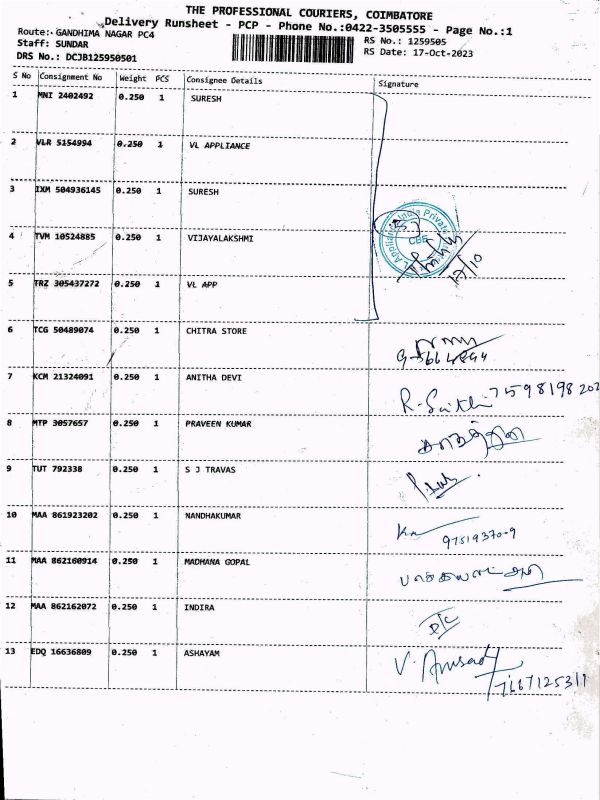 THE PROFESSIONAL COURIERS, COIMBATORE
Delivery Runsheet - PCP - Phone No.:0422-3505555 - Page No.:1
Route:- GANDHIMA NAGAR PC4
Staff: SUNDAR
DRS No.: DCJB125950501
RS No.: 1259505
RS Date: 17-Oct-2023
S No Consignment No Weight PCS Consignee Details Signature
1 MNI 2402492 0.250 1 SURESH
2 VLR 5154994 0.250 1 VL APPLIANCE
3 IXM 504936145 0.250 1 SURESH
4 TVM 10524885 0.250 1 VIJAYALAKSHMI
CBE
17/10
5 TRZ 305437272 0.250 1 VL APP
6 TCG 50489074 0.250 1 CHITRA STORE
7 KCM 21324091 0.250 1 ANITHA DEVI
8 MTP 3057657 0.250 1 PRAVEEN KUMAR
9 TUT 792338 0.250 1 S J TRAVAS
10 MAA 861923202 0.250 1 NANDHAKUMAR
11 MAA 862160914 0.250 1 MADHANA GOPAL
12 MAA 862162072 0.250 1 INDIRA
13 EDQ 16636809 0.250 1 ASHAYAM
7667125311